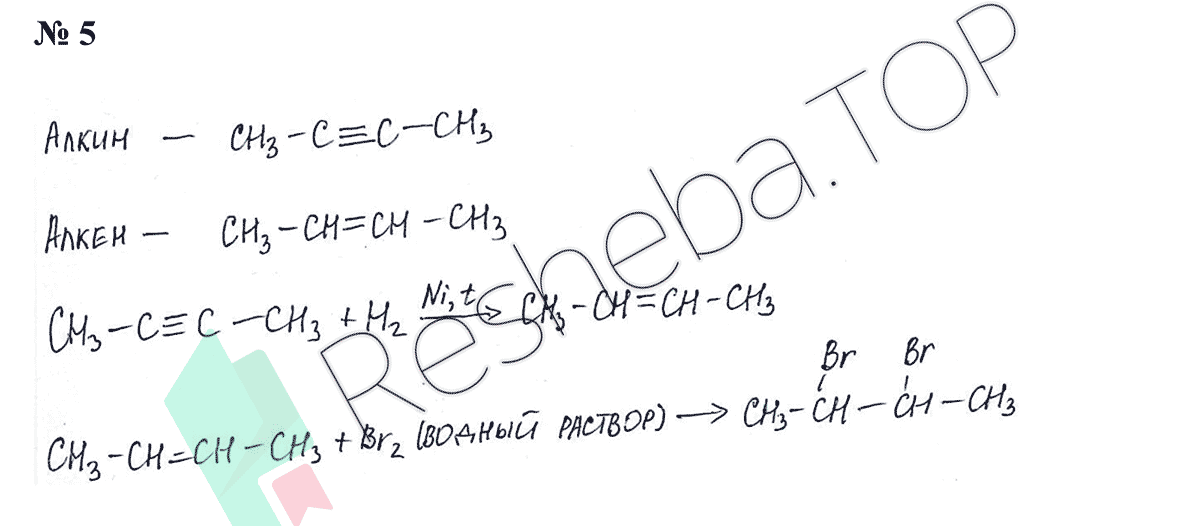 № 5
Алкин — CH₃–C≡C–CH₃
Алкен — CH₃–CH=CH–CH₃
CH₃–C≡C–CH₃ + H₂ Ni, t → CH₃–CH=CH–CH₃
Br Br
CH₃–CH=CH–CH₃ + Br₂ (водный раствор) → CH₃–CH–CH–CH₃
Resheba.TOP